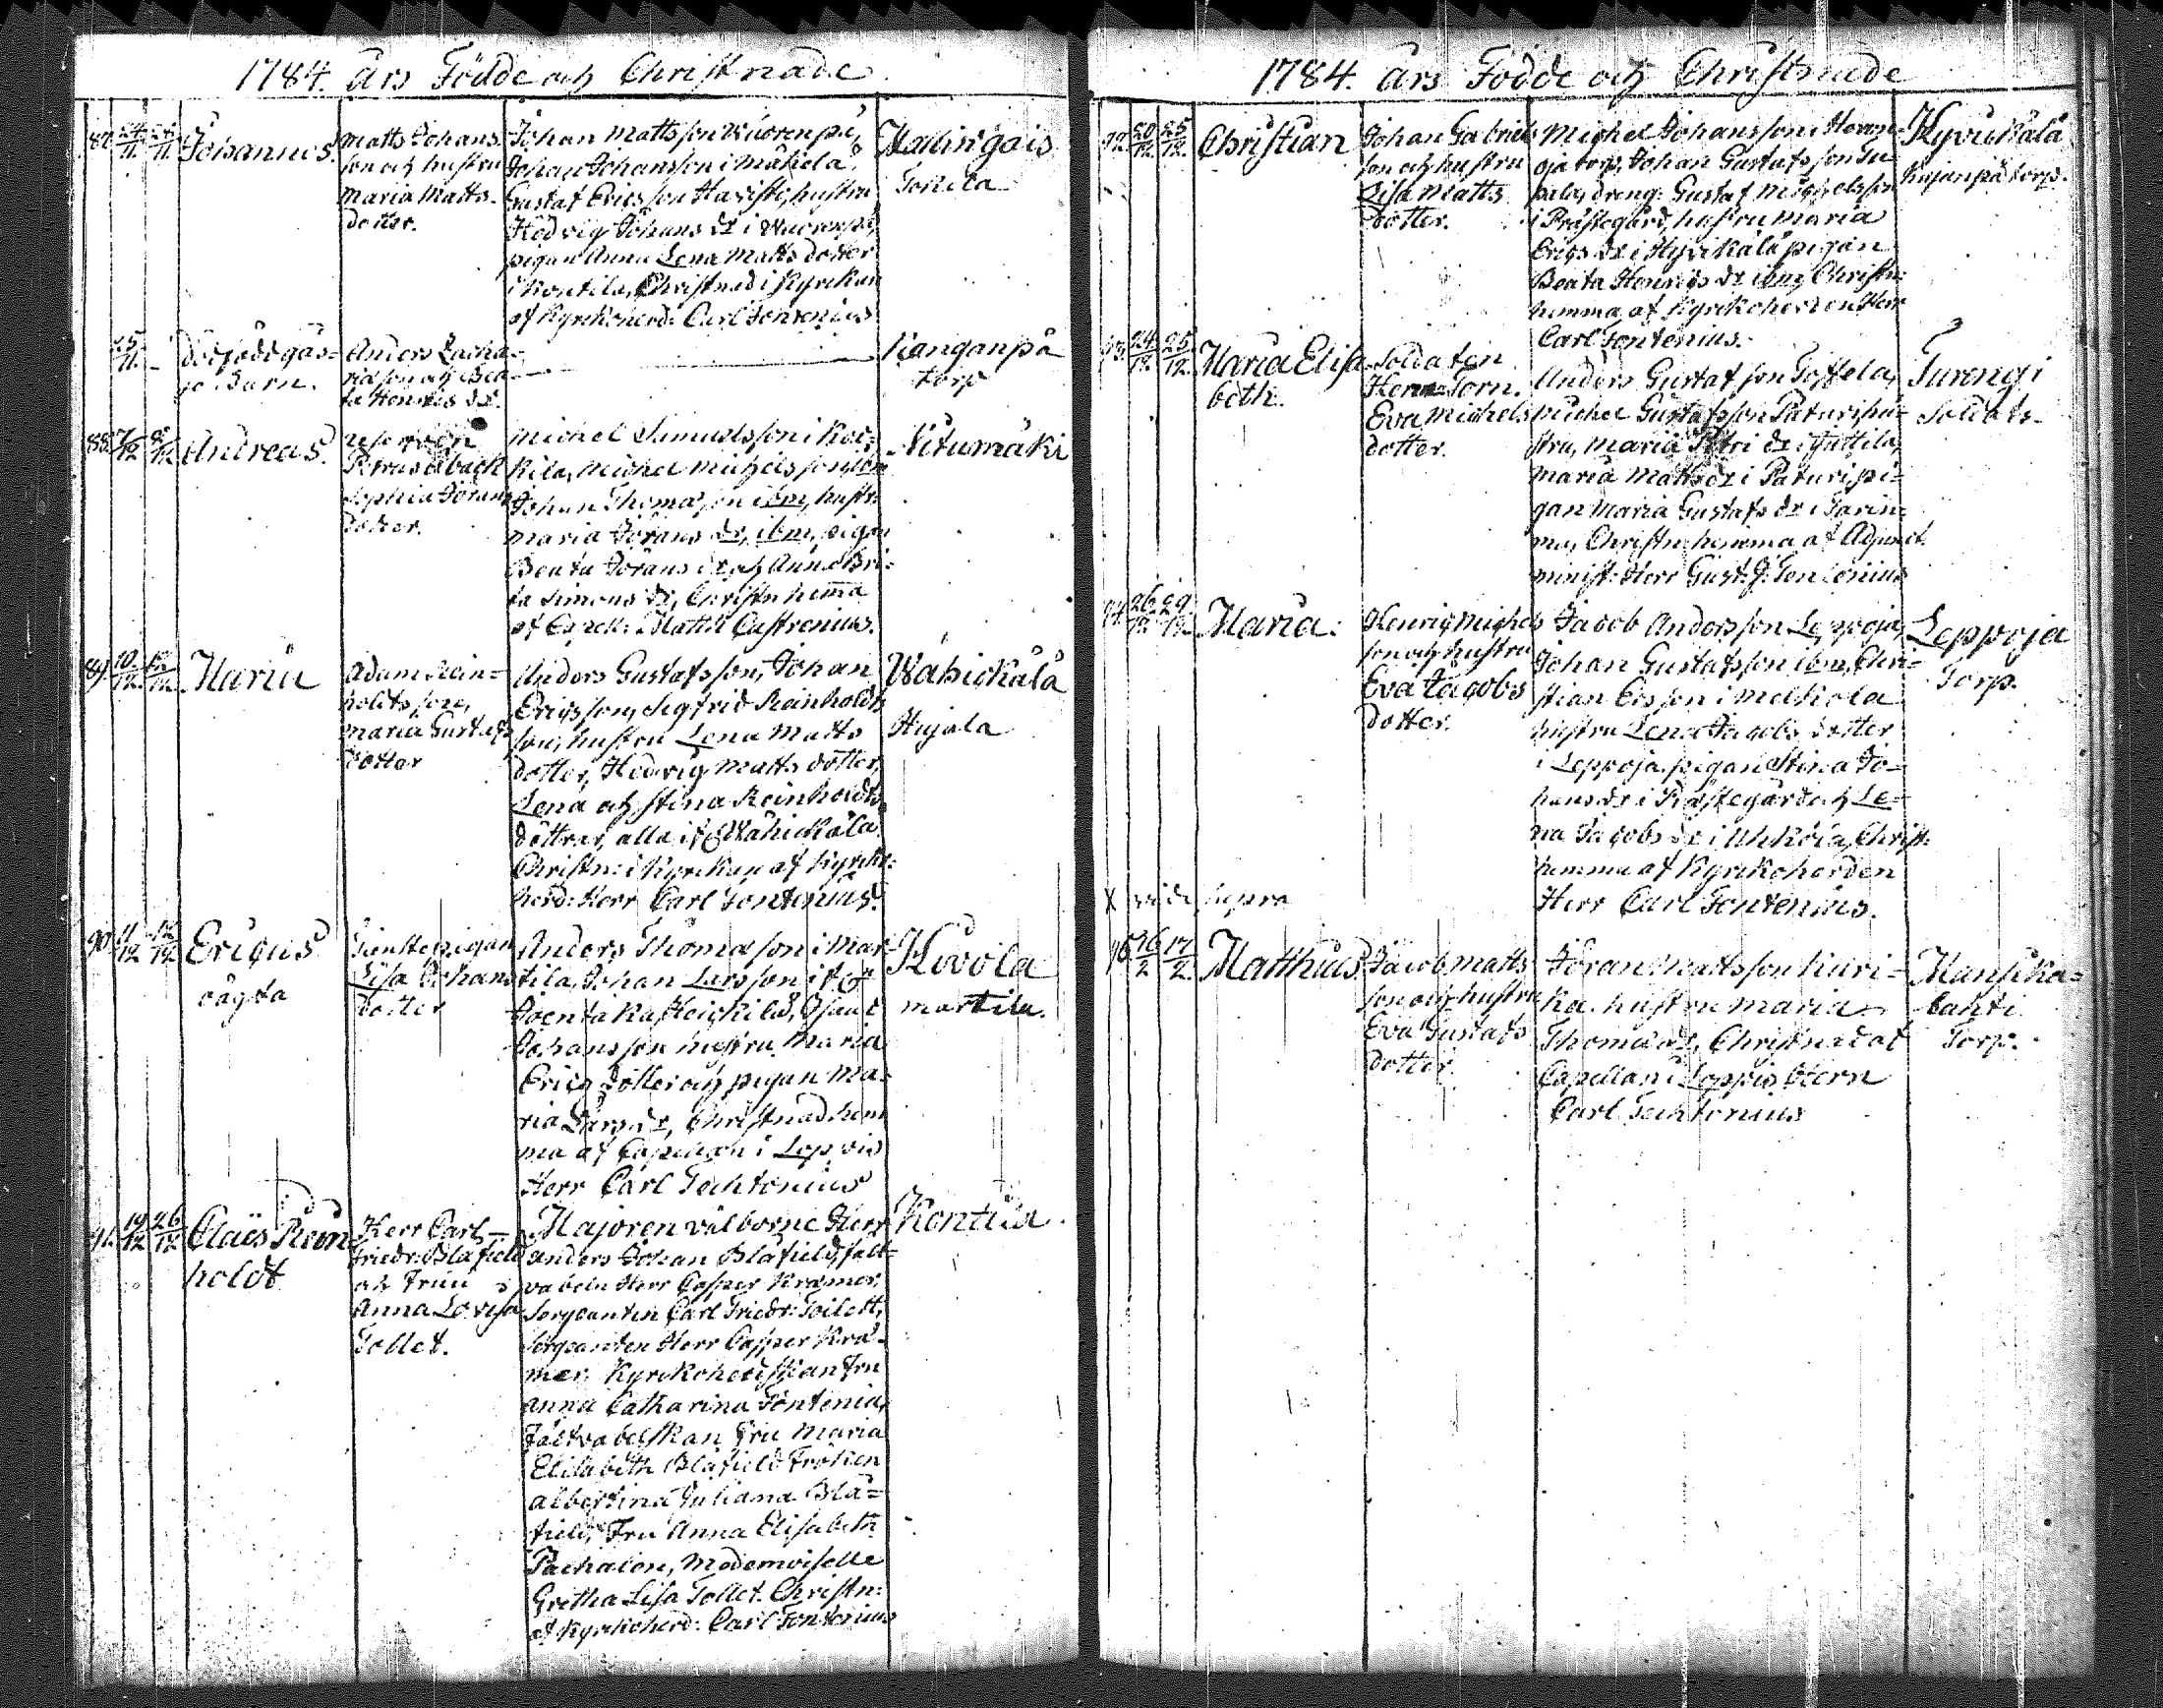 1784. års Födde och Christnade
87. 24/11. 28/11. Johannes.
Matts Johans-
son och hustru
Maria Matts-
dotter.
Johan Mattsson Wuorenpä,
Johan Johansson i Mäkelä
Gustaf Ericsson Haristi, hustru
Hedvig Johans dr i Wuorenpä,
pigan Anna Lena Matts dotter
i Kontila, Christnad i Kyrkan
af Kyrkoherd: Carl Fontenius
Hallingois
25/11. –
dödfödt gås-
se Barn.
Anders Zacha-
riæson och Bea-
ta Henrics dr.
Kanganpä
torp
88. 7/12 8/12 Andreas.
reserven
Petrus
Sophia Jörans
dotter.
Michel Simonsson i
kila, Michel Michelsson ibm
Johan Thomæson ibm, hustr:
Maria Jörans dr, ibm, pigan
Beata Jörans dr och Anna Bri-
ta Simons dr, Christn hemma
af Mattii Castrenius.
Nitumäki
89. 10/12 12/12 Maria
Adam Rein-
holdsson,
Maria Gustafs
dotter
Anders Gustafsson, Johan
Ericsson, Sigfrid Reinholds
son, hustru Lena Matts
dotter, Hedvig Matts dotter,
Lena och Stina Reinholds
döttrar, alla ifrå Wähickälä
Christn: i Kyrkan af Kyrko-
herd: Herr Carl Fontenius.
Wähickälä
Hujala
90. 11/12 12/12 Ericus
oägta
Tienstepigan
Lisa Johans
dotter
Anders Thomæson i Mar-
tila, Johan Larsson ifrå
Heickilä, Isaac
Johansson hustru Maria
Erics dotter och pigan Ma-
ria Lars dr, Christnad hem
ma af Capellan i Loppis
Herr Carl Techtonius
Kovola
martila.
91. 19/12 26/12 Claës Rein
holdt
Herr Carl
Friedr: Blåfield
och Fruu
Anna Lovisa
Tollet.
Majoren välborne Herr
Anders Johan Blåfield, fält-
väbeln Herr Casper Kræmer
Sergeanten Carl Friedr: Toilett,
Sergeanten Herr Casper Kræ-
mer, Kyrkoherdskan Fru
Anna Catharina Fontenia,
Fältväbelskan Fru Maria
Elisabeth Blåfield Fröken
Albertina Juliana Blå=
field, Fru Anna Elisabeth
Pachalen, Mademoiselle
Gretha Lisa Tollet. Christn:
af Kyrkoherd: Carl Fontenius
Kontila
1784. års Födde och Christnade
92. 20/12. 25/12. Christian
Johan Gabriels
son och hustru
Lisa Matts
dotter.
Michel Johansson i
oja torp, Johan Gustafsson Tu-
pala, dreng: Gustaf Michelsson
i Prästegård, hustru Maria
Erics dr i Hyvikälä pigan
Beata Henrics dr ibm, Christn:
hemma, af Kyrkoherden Herr
Carl Fontenius.
Hyvickälä
torp.
93. 24/12. 25/12. Maria Elisa
beth.
Soldaten
Herm: Torn.
Eva Michels
dotter.
Anders Gustafsson Toffela,
Michel Gustafsson Paturi, hu-
stru, Maria Petri dr i Jattila,
Maria Matts dr i Paturi, pi-
gan Maria Gustafs dr i Tarin-
ma, Christn: hemma af Adjunct.
minist: Herr Gust: J: Fontenius
Turengi
Soldats-
94. 26/12. 29/12. Maria.
Henric Michels
son och hustru
Eva Jacobs
dotter.
Jacob Andersson Leppoja,
Johan Gustafsson ibm, Chri-
stian Ersson i Melkola
hustru Lena Jacobs dotter
i Leppoja, pigan Stina Jo-
hans dr i Prästegård och Le-
na Jacobs dr i Uhkoia, Christ:
hemma af Kyrkoherden
Herr Carl Fontenius.
Leppoja
Torp.
X vide supra
95. 16/2 17/2. Matthias
Jacob Matts
son och hustru
Eva Gustafs
dotter.
Jöran Mattsson Kuri-
ka. hustru Maria
Thomæ dr, Christnad af
Capellan i Loppis Herr
Carl Techtonius
Mansika-
lahti
Torp.